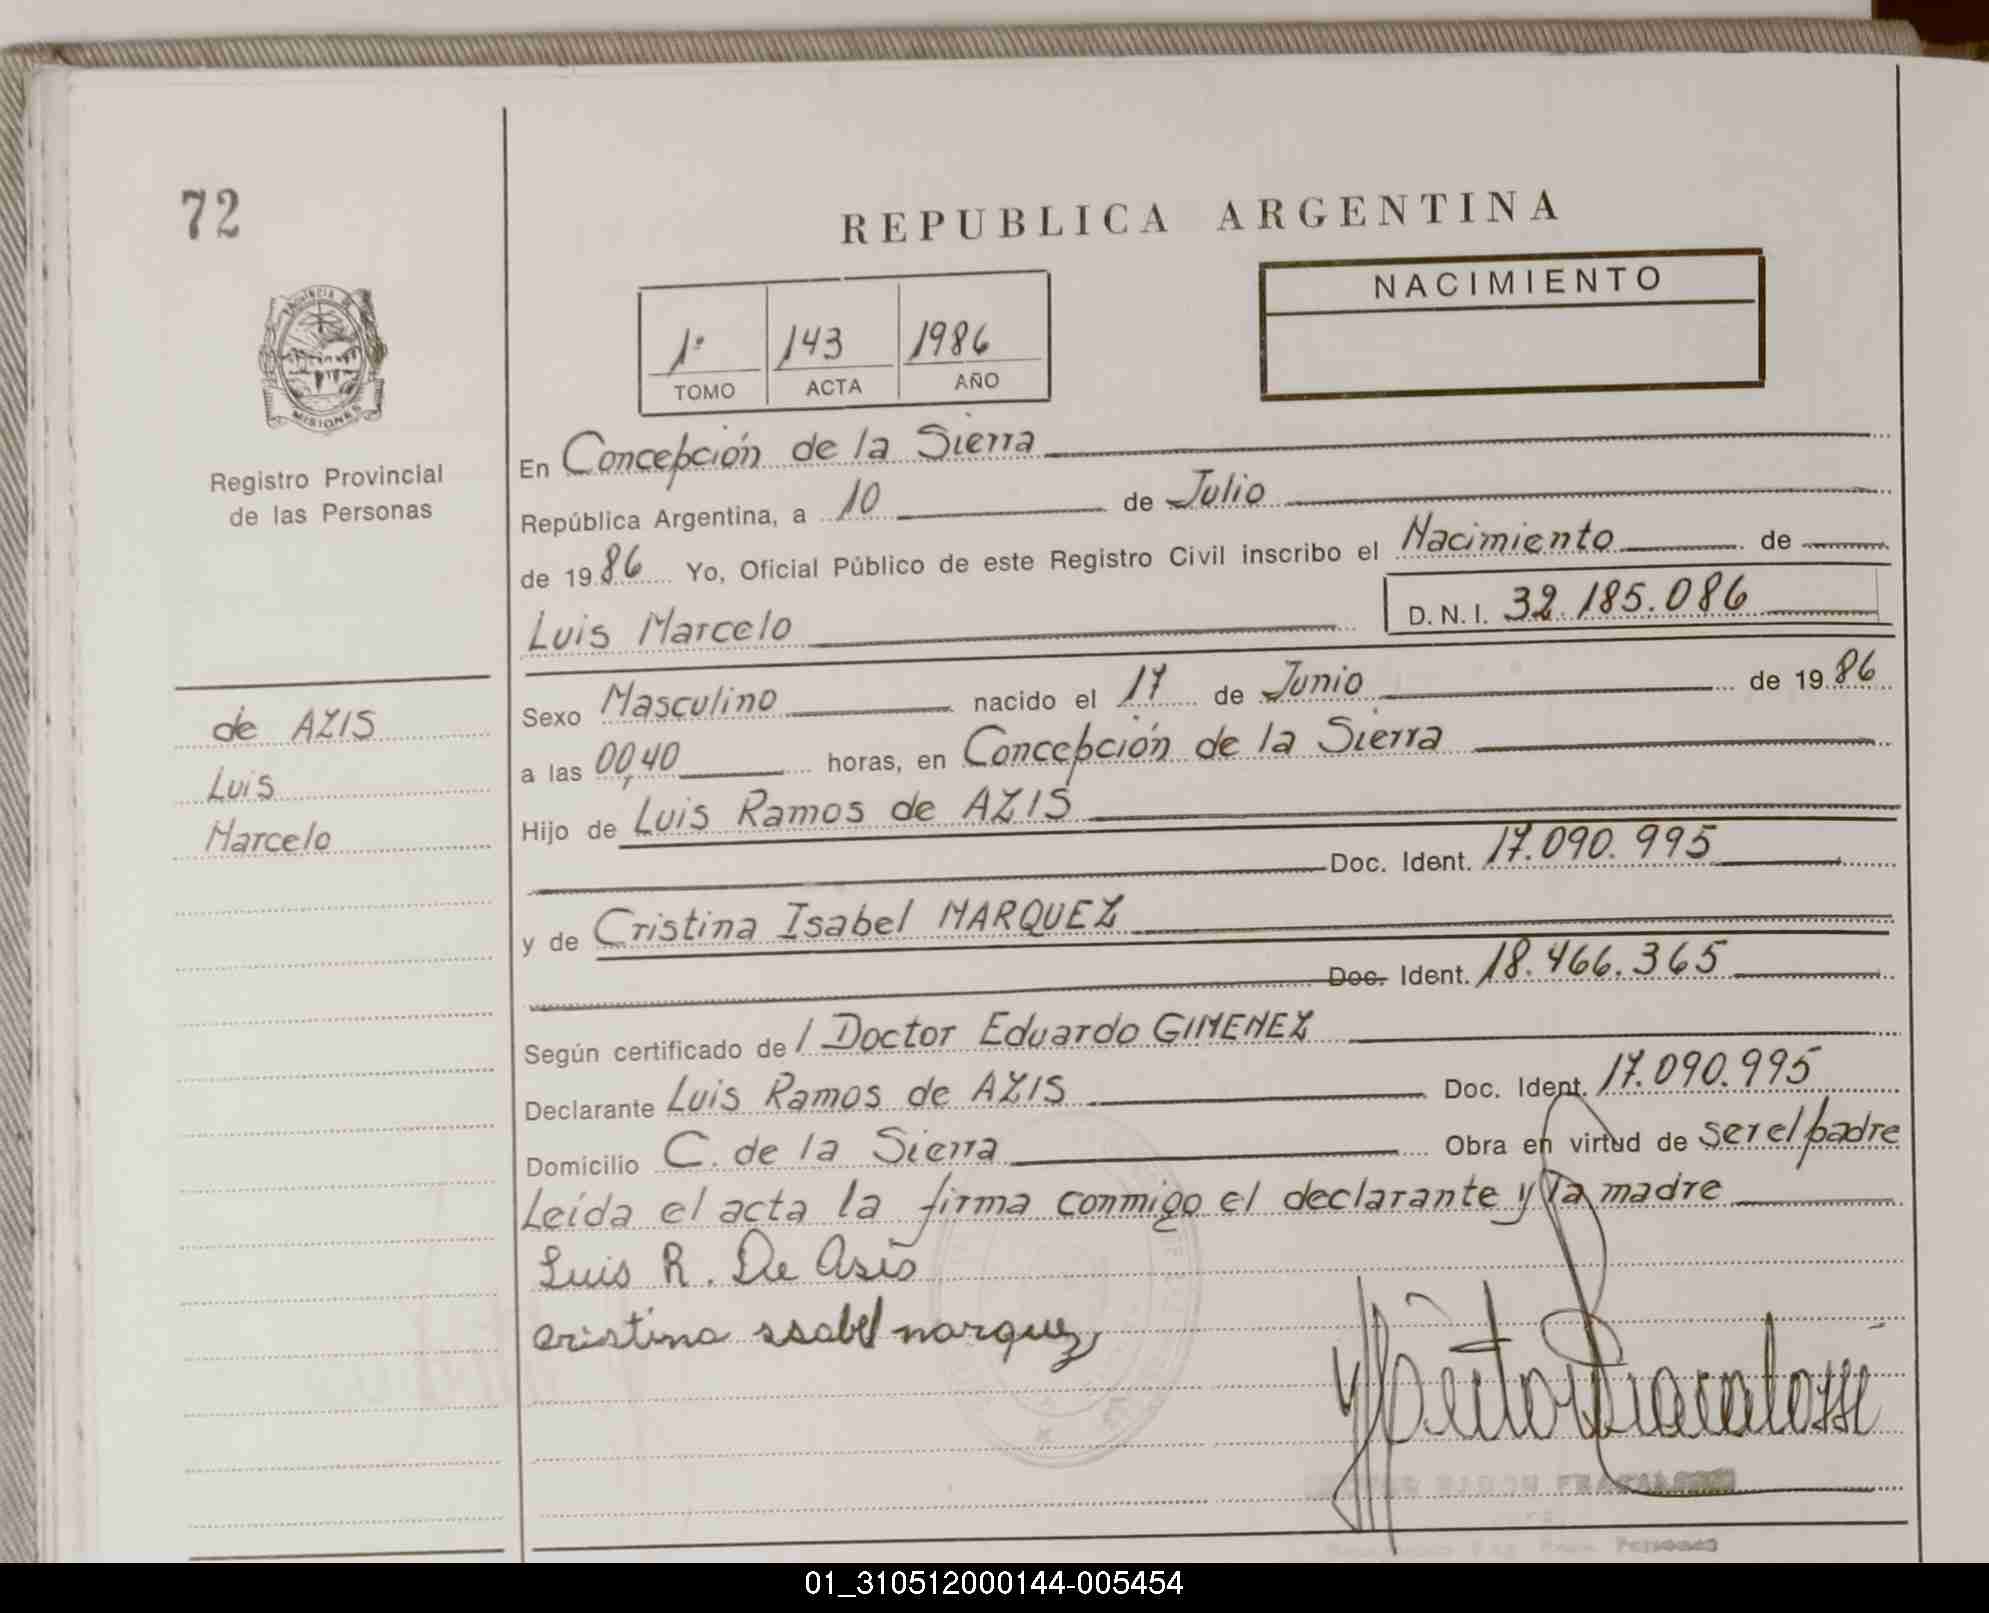 72
REPUBLICA ARGENTINA
NACIMIENTO
1º 143 1986
TOMO ACTA AÑO
PROVINCIA DE
MISIONES
Registro Provincial
de las Personas
En Concepción de la Sierra
República Argentina, a 10 de Julio
de 1986 Yo, Oficial Público de este Registro Civil inscribo el Nacimiento de
Luis Marcelo D.N.I. 32.185.086
de AZIS
Luis
Marcelo
Sexo Masculino nacido el 17 de Junio de 1986
a las 00,40 horas, en Concepción de la Sierra
Hijo de Luis Ramos de AZIS
Doc. Ident. 17.090.995
y de Cristina Isabel MARQUEZ
Doc. Ident. 18.466.365
Según certificado de / Doctor Eduardo GIMENEZ
Declarante Luis Ramos de AZIS Doc. Ident. 17.090.995
Domicilio C. de la Sierra Obra en virtud de ser el padre
Leída el acta la firma conmigo el declarante y la madre
Luis R. De Asis
cristina ssabel marquez
Personas
01_310512000144-005454